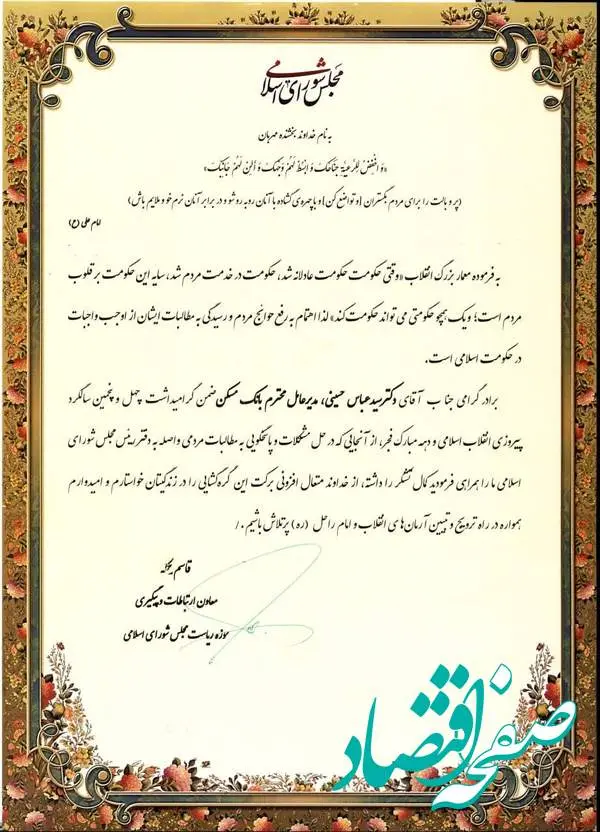 مجلس شورای اسلامی
به نام خداوند بخشنده مهربان
«وَ اخْفِضْ لِلرَّعِیَّةِ جَنَاحَکَ وَ ابْسُطْ لَهُمْ وَجْهَکَ وَ أَلِنْ لَهُمْ جَانِبَکَ»
(پر و بالت را برای مردم بگستران [و تواضع کن] و با چهره‌ی گشاده با آنان روبه رو شو و در برابر آنان نرم خو و ملایم باش)
امام علی (ع)
به فرموده معمار بزرگ انقلاب «وقتی حکومت حکومت عادلانه شد، حکومت در خدمت مردم شد، سایه این حکومت بر قلوب
مردم است؛ و یک همچو حکومتی می تواند حکومت کند» لذا اهتمام به رفع حوائج مردم و رسیدگی به مطالبات ایشان از اوجب واجبات
در حکومت اسلامی است.
برادر گرامی جناب آقای دکتر سید عباس حسینی، مدیرعامل محترم بانک مسکن ضمن گرامیداشت چهل و پنجمین سالگرد
پیروزی انقلاب اسلامی و دهه مبارک فجر، از آنجایی که در حل مشکلات و پاسخگویی به مطالبات مردمی واصله به دفتر رئیس مجلس شورای
اسلامی ما را همراهی فرمودید کمال تشکر را داشته، از خداوند متعال افزونی برکت این گره گشایی را در زندگیتان خواستارم و امیدوارم
همواره در راه ترویج و تبیین آرمان‌های انقلاب و امام راحل (ره) پرتلاش باشیم./
قاسم
معاون ارتباطات و پیگیری
حوزه ریاست مجلس شورای اسلامی
صفحه اقتصاد